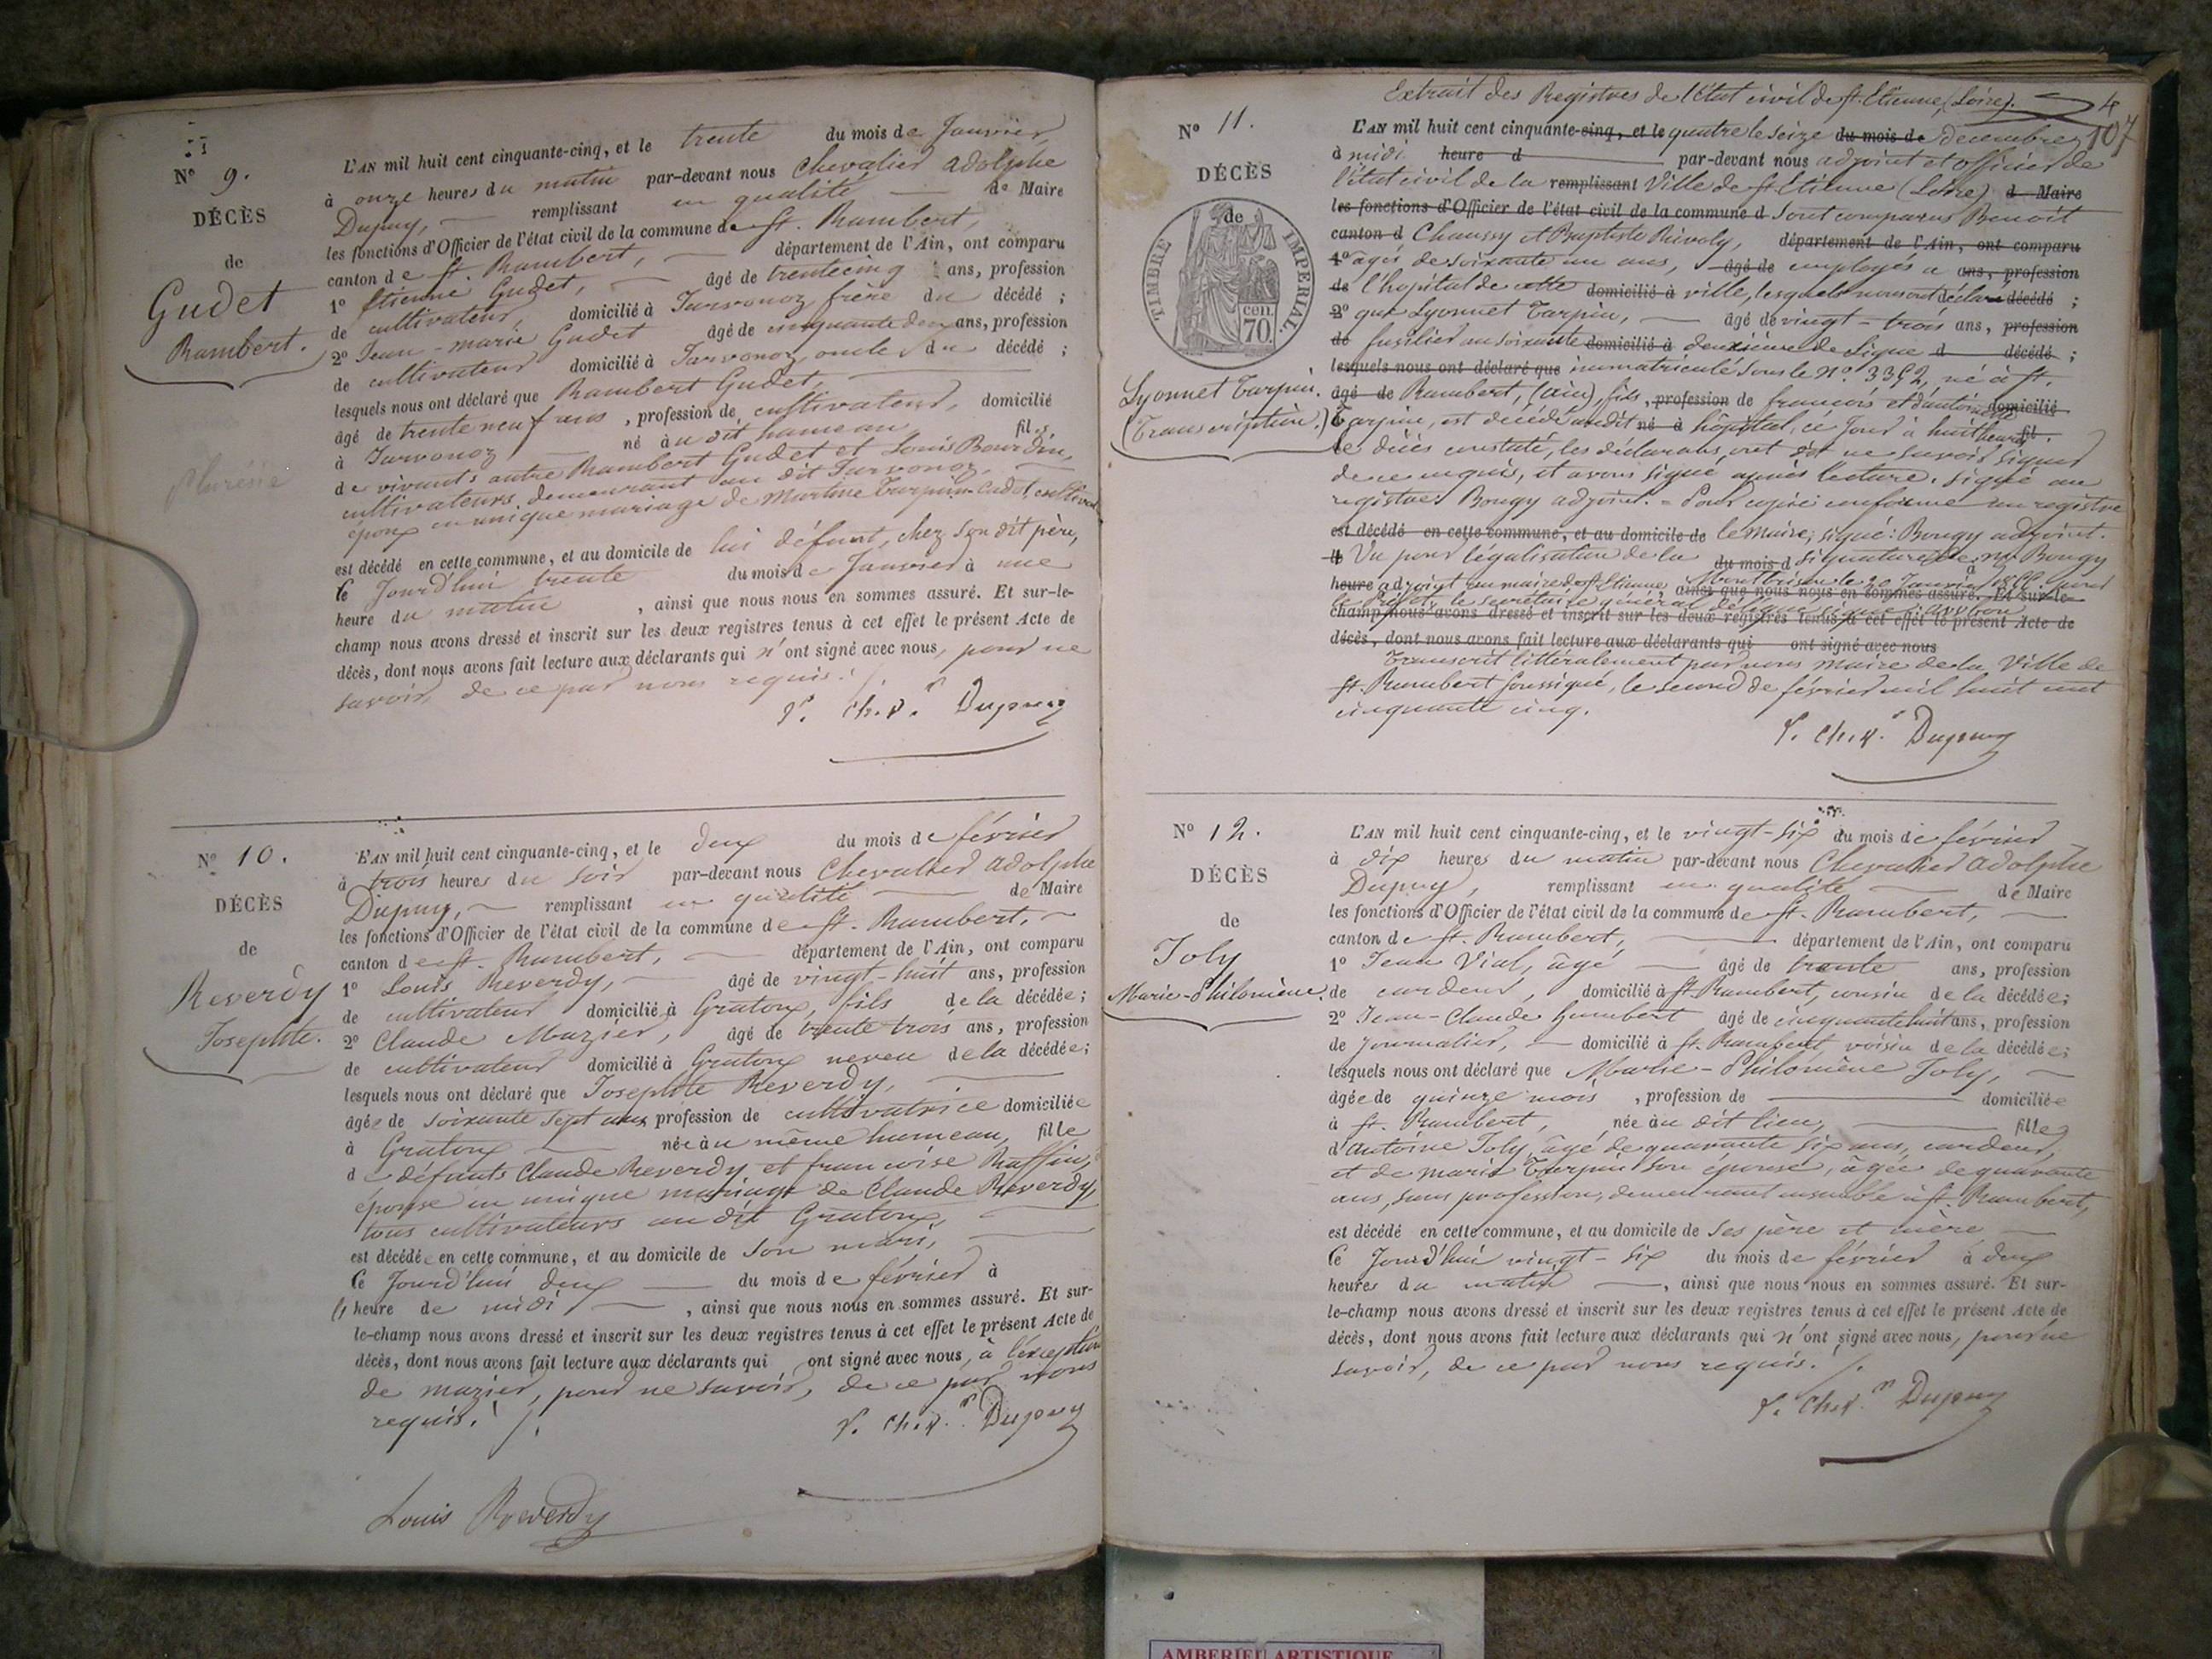 Nº 9.
DÉCÈS
de
Gudet
Rambert.
L'AN mil huit cent cinquante-cinq, et le trente du mois de Janvier
à onze heures du matin par-devant nous Chevalier Adolphe
Dupuy, remplissant en qualité de Maire
les fonctions d'Officier de l'état civil de la commune de St. Rambert,
canton de St. Rambert, département de l'Ain, ont comparu
1º Etienne Gudet, âgé de trente cinq ans, profession
de cultivateur, domicilié à Jarvonoz, frère du décédé ;
2º Jean-marie Gudet âgé de cinquante deux ans, profession
de cultivateur domicilié à Jarvonoz, oncle du décédé ;
lesquels nous ont déclaré que Rambert Gudet,
âgé de trente neuf ans, profession de cultivateur, domicilié
à Jarvonoz né au dit hameau, fils
de vivants autre Rambert Gudet et Louise Bourdin,
cultivateurs, demeurant au dit Jarvonoz,
époux en unique mariage de Martine Tarpin-Cadot, cultivat.
est décédé en cette commune, et au domicile de lui défunt, chez son dit père,
Ce Jourd'hui trente du mois de Janvier à une
heure du matin, ainsi que nous nous en sommes assuré. Et sur-le-
champ nous avons dressé et inscrit sur les deux registres tenus à cet effet le présent Acte de
décès, dont nous avons fait lecture aux déclarants qui n'ont signé avec nous, pour ne
savoir, de ce par nous requis. /.
Ch.r Dupuy
Nº 10.
DÉCÈS
de
Reverdy
Josephte.
L'AN mil huit cent cinquante-cinq, et le deux du mois de février
à trois heures du soir par-devant nous Chevalier Adolphe
Dupuy, remplissant en qualité de Maire
les fonctions d'Officier de l'état civil de la commune de St. Rambert,
canton de St. Rambert, département de l'Ain, ont comparu
1º Louis Reverdy, âgé de vingt-huit ans, profession
de cultivateur domicilié à Gratoux, fils de la décédée ;
2º Claude Mazier, âgé de trente trois ans, profession
de cultivateur domicilié à Gratoux neveu de la décédée ;
lesquels nous ont déclaré que Josephte Reverdy,
âgée de soixante sept ans, profession de cultivatrice domiciliée
à Gratoux née au même hameau, fille
de défunts Claude Reverdy et francoise Ruffin,
épouse en unique mariage de Claude Reverdy,
tous cultivateurs au dit Gratoux,
est décédée en cette commune, et au domicile de son mari,
Ce Jourd'hui deux du mois de février à
l'heure de midi, ainsi que nous nous en sommes assuré. Et sur-
le-champ nous avons dressé et inscrit sur les deux registres tenus à cet effet le présent Acte de
décès, dont nous avons fait lecture aux déclarants qui ont signé avec nous, à l'exception
de mazier, pour ne savoir, de ce par nous
requis. /.
Ch.r Dupuy
Louis Reverdy
Extrait des Registres de l'état civil de St. Etienne, (Loire).
4
107
Nº 11.
DÉCÈS
de
TIMBRE IMPERIAL.
70 cen.
Lyonnet Tarpin.
(Transcription.)
L'AN mil huit cent cinquante-cinq, et le quatre le seize du mois de decembre
à midi heure d par-devant nous adjoint et officier de
l'état civil de la remplissant Ville de St Etienne (Loire) d Maire
les fonctions d'Officier de l'état civil de la commune d Sont comparus Benoit
canton d Chaussy et Baptiste Rivoly, département de l'Ain, ont comparu
1º agés de soixante un ans, âgé de employés a ans, profession
de l'hopital de cette domicilié à ville, lesquels nous ont déclaré décédé ;
2º que Lyonnet Tarpin, âgé de vingt-trois ans, profession
de fusilier au soixante domicilié à deuxième de Ligne d décédé ;
lesquels nous ont déclaré que immatriculé sous le nº 3392, né à St.
âgé de Rambert, (ain), fils, profession de francois et d'antoinette domicilié
Tarpin, est décédé audit né à hôpital, ce jour à huit heures fil.
Le décès constaté, les déclarants, ont dit ne savoir signer
de ce requis, et avons signé après lecture. signé au
registre Bougy adjoint. = Pour copie conforme au registre
est décédé en cette commune, et au domicile de le Maire, signé : Bougy adjoint.
Vu pour légalisation de la du mois d signature de mr Bougy
heure adjoint au maire de St. Etienne, à Montbrison le 20 Janvier ainsi que nous nous en sommes assuré. Et sur-le-
le secrétaire général délégué signé
champ nous avons dressé et inscrit sur les deux registres tenus à cet effet le présent Acte de
décès, dont nous avons fait lecture aux déclarants qui ont signé avec nous
Transcrit littéralement par nous maire de la Ville de
St. Rambert soussigné, le second de février mil huit cent
cinquante cinq.
Ch.r Dupuy
Nº 12.
DÉCÈS
de
Joly
Marie-Philomène.
L'AN mil huit cent cinquante-cinq, et le vingt-six du mois de février
à dix heures du matin par-devant nous Chevalier Adolphe
Dupuy, remplissant en qualité de Maire
les fonctions d'Officier de l'état civil de la commune de St. Rambert,
canton de St. Rambert, département de l'Ain, ont comparu
1º Jean Vial, âgé âgé de trente ans, profession
de cardeur, domicilié à St. Rambert, cousin de la décédée ;
2º Jean-Claude Humbert âgé de cinquante huit ans, profession
de Journalier, domicilié à St. Rambert, voisin de la décédée ;
lesquels nous ont déclaré que Marie-Philomène Joly,
âgée de quinze mois, profession de domiciliée
à St. Rambert, née au dit lieu, fille
d'antoine Joly, âgé de quarante six ans, cardeur,
et de marie Tarpin son épouse, âgée de quarante
ans, sans profession, demeurant ensemble à St. Rambert,
est décédé en cette commune, et au domicile de ses père et mère
Ce Jourd'hui vingt-six du mois de février à deux
heures du matin, ainsi que nous nous en sommes assuré. Et sur-
le-champ nous avons dressé et inscrit sur les deux registres tenus à cet effet le présent Acte de
décès, dont nous avons fait lecture aux déclarants qui n'ont signé avec nous, pour ne
savoir, de ce par nous requis. /.
Ch.r Dupuy
AMBERIEU ARTISTIQUE